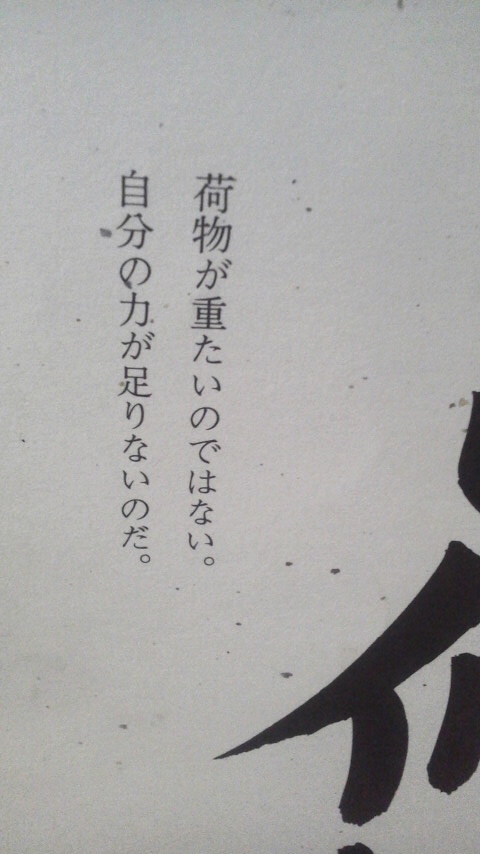 荷物が重たいのではない。
自分の力が足りないのだ。